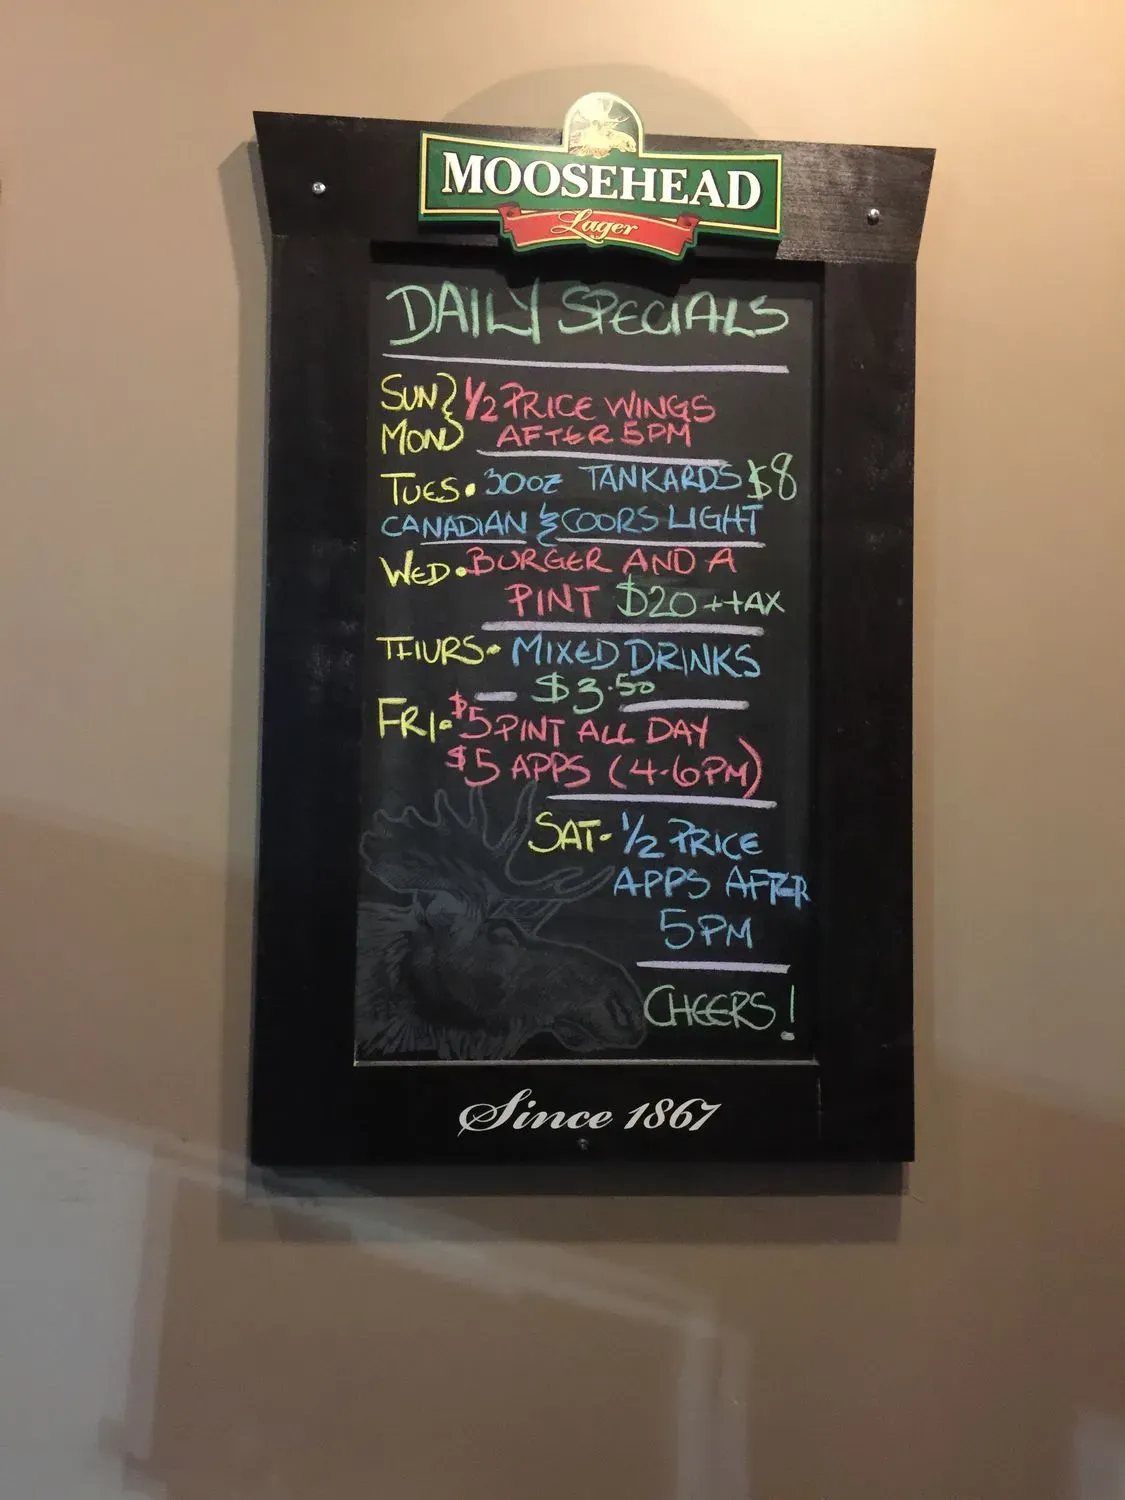 MOOSEHEAD
Lager
DAILY SPECIALS
SUN } 1/2 PRICE WINGS
MON } AFTER 5PM
TUES. 30oz TANKARDS $8
CANADIAN & COORS LIGHT
WED. BURGER AND A
PINT $20 ++AX
THURS. MIXED DRINKS
$3.50
FRI. $5 PINT ALL DAY
$5 APPS (4-6PM)
SAT- 1/2 PRICE
APPS AFTER
5PM
CHEERS!
Since 1867